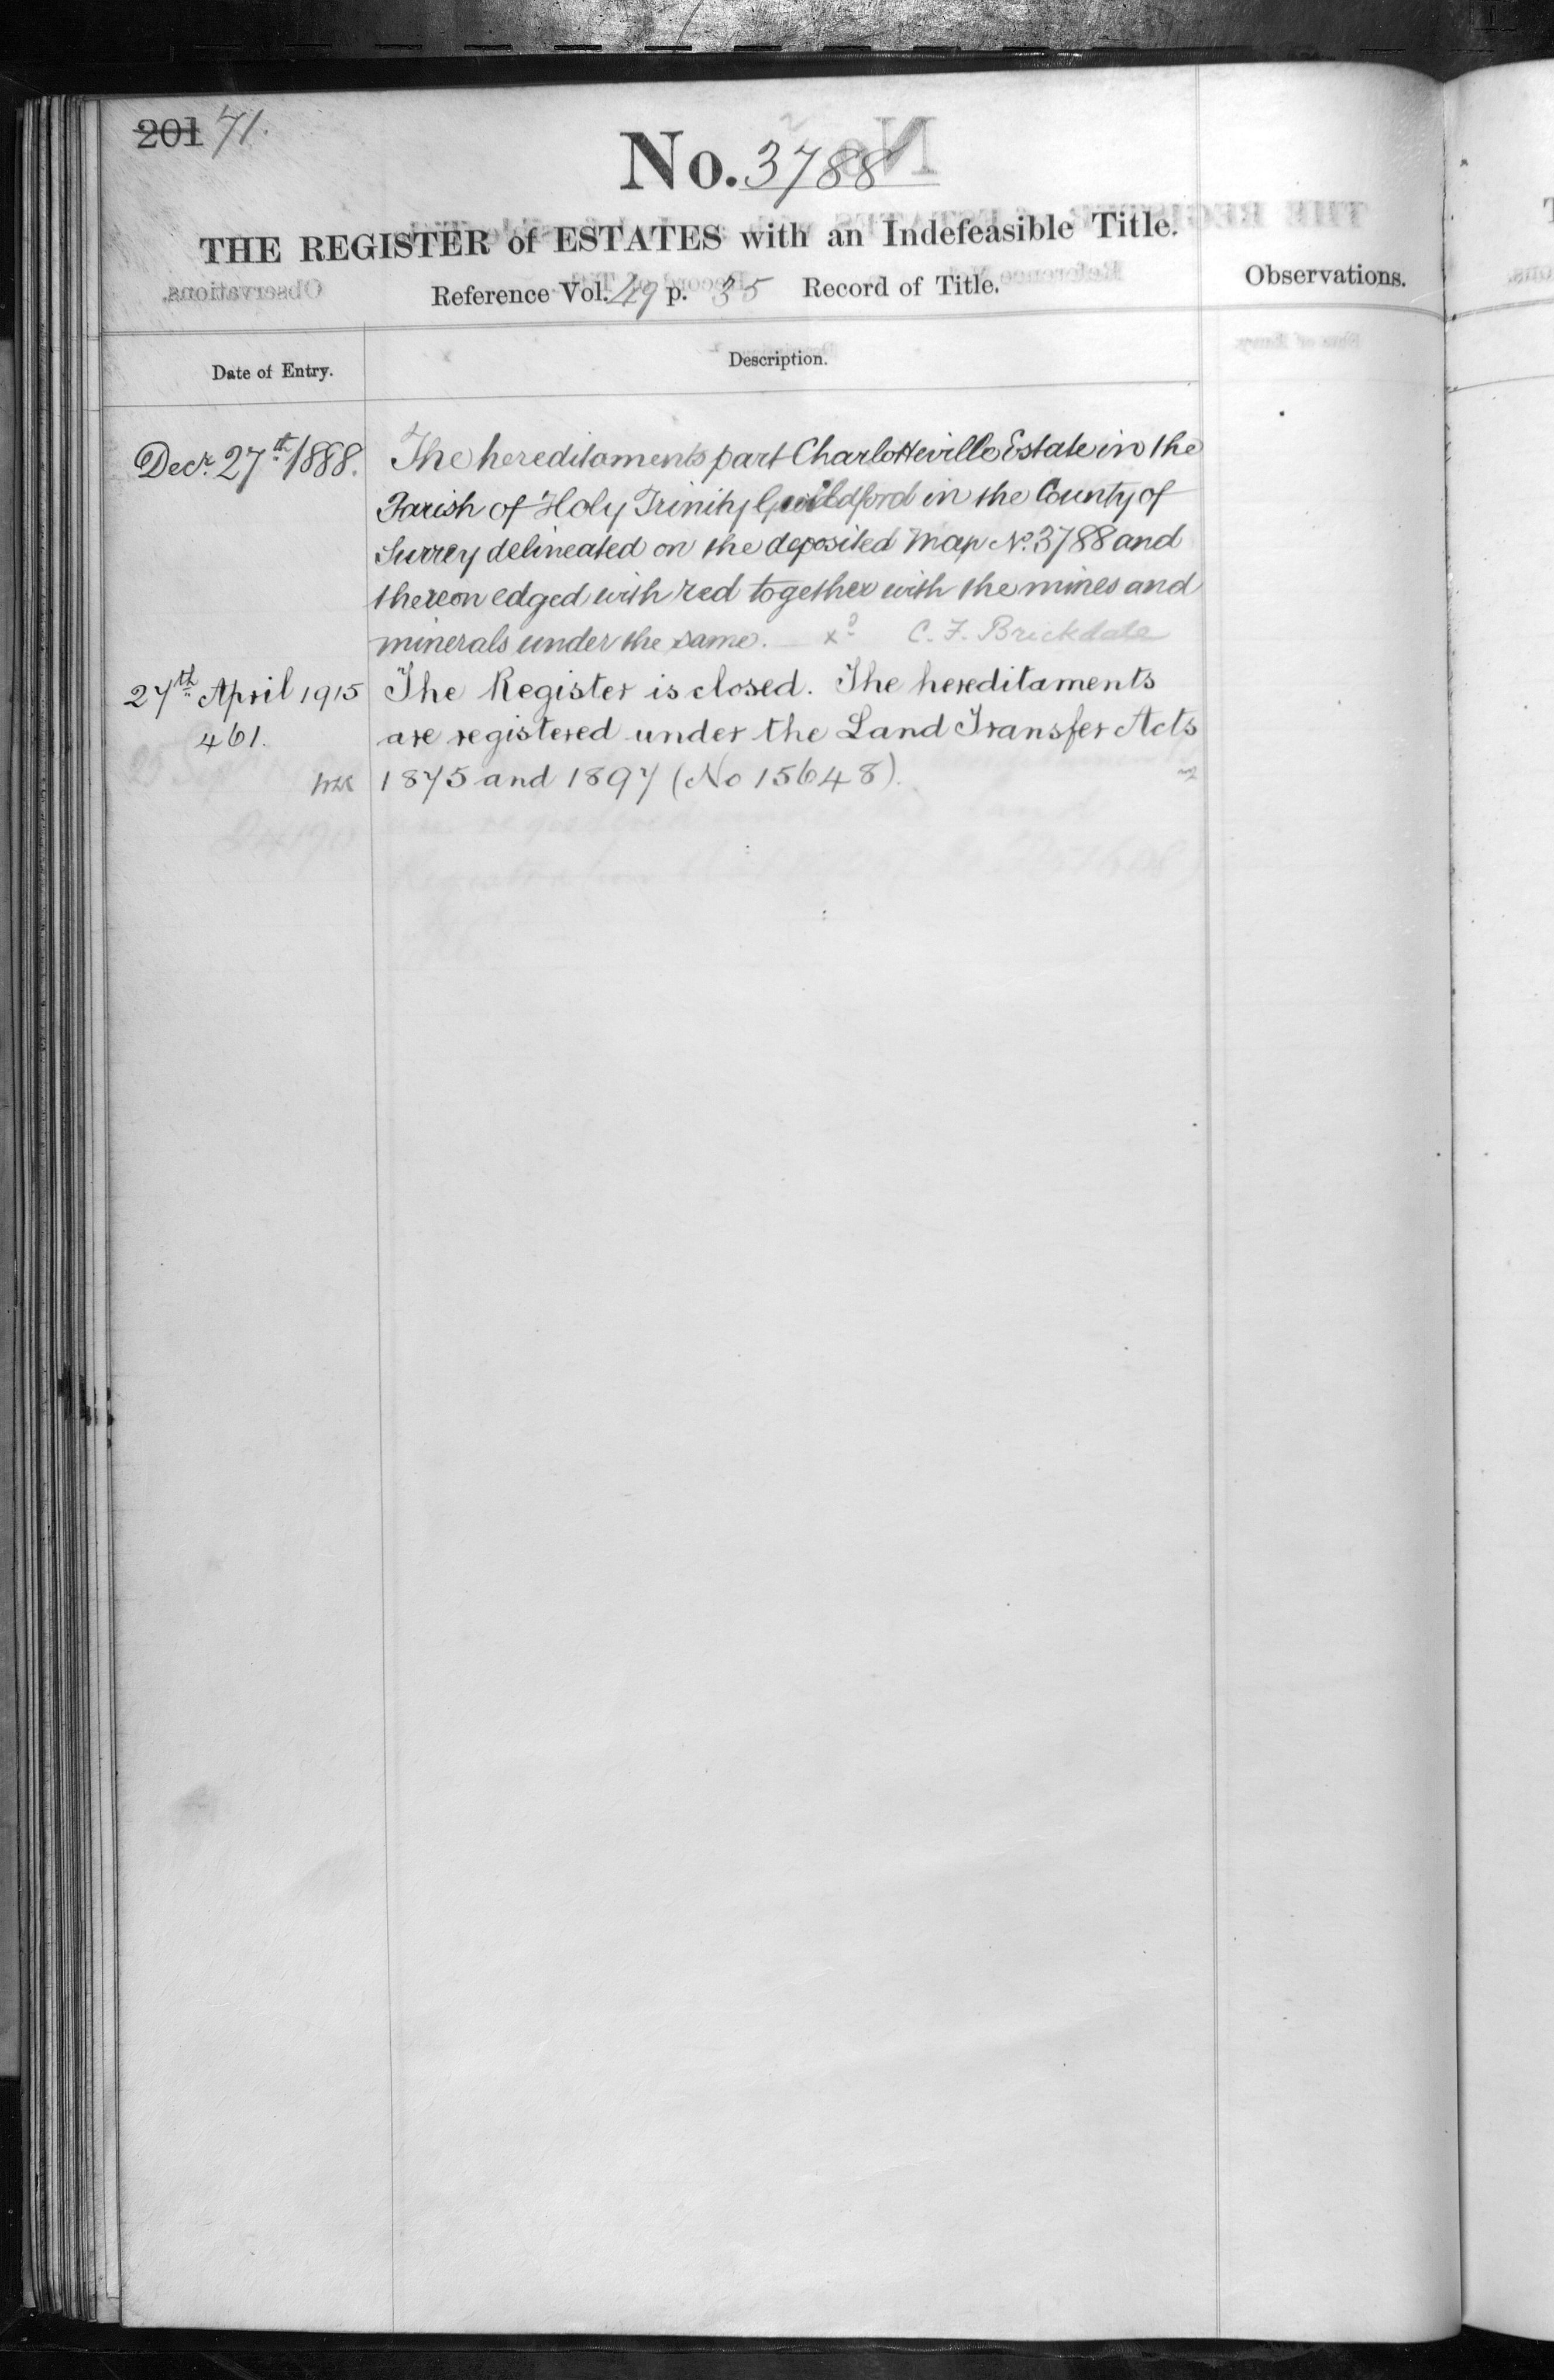 201 71.
No. 3788
THE REGISTER of ESTATES with an Indefeasible Title.
Reference Vol. 49 p. 35 Record of Title.
Observations.
Date of Entry.
Description.
Decr. 27th 1888.
The hereditaments part Charlotteville Estate in the
Parish of Holy Trinity Guildford in the County of
Surrey delineated on the deposited Map No. 3788 and
thereon edged with red together with the mines and
minerals under the same. C. F. Brickdale
27th April 1915
461.
The Register is closed. The hereditaments
are registered under the Land Transfer Acts
1875 and 1897 (No 15648).